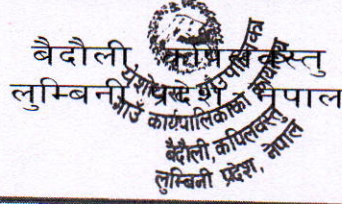 बैदौली कपिलवस्तु
लुम्बिनी प्रदेश नेपाल
गाउँ कार्यपालिकाको कार्यालय
बैदौली, कपिलवस्तु
लुम्बिनी प्रदेश, नेपाल